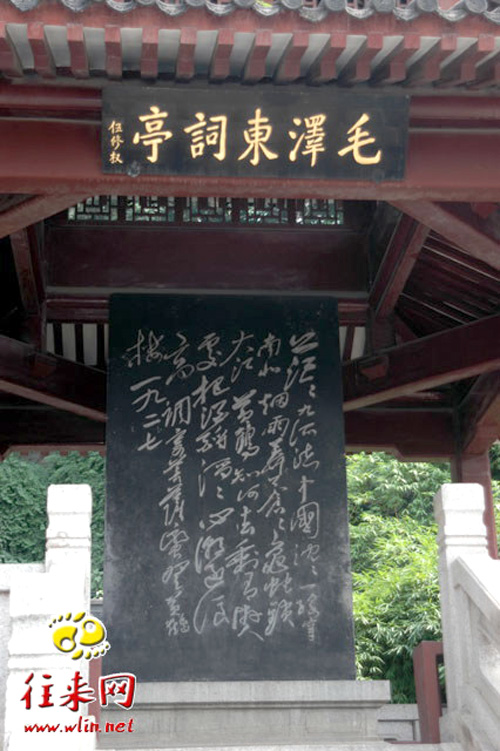 毛澤東詞亭
伍修权
茫〻九派流中國沉〻一线穿
南北烟雨莽苍〻龟蛇锁
大江黄鹤知何去剩有游人
处把酒酹滔〻心潮逐浪
高调寄菩萨蛮登黄鹤
楼一九二七
往来网
www.wlin.net